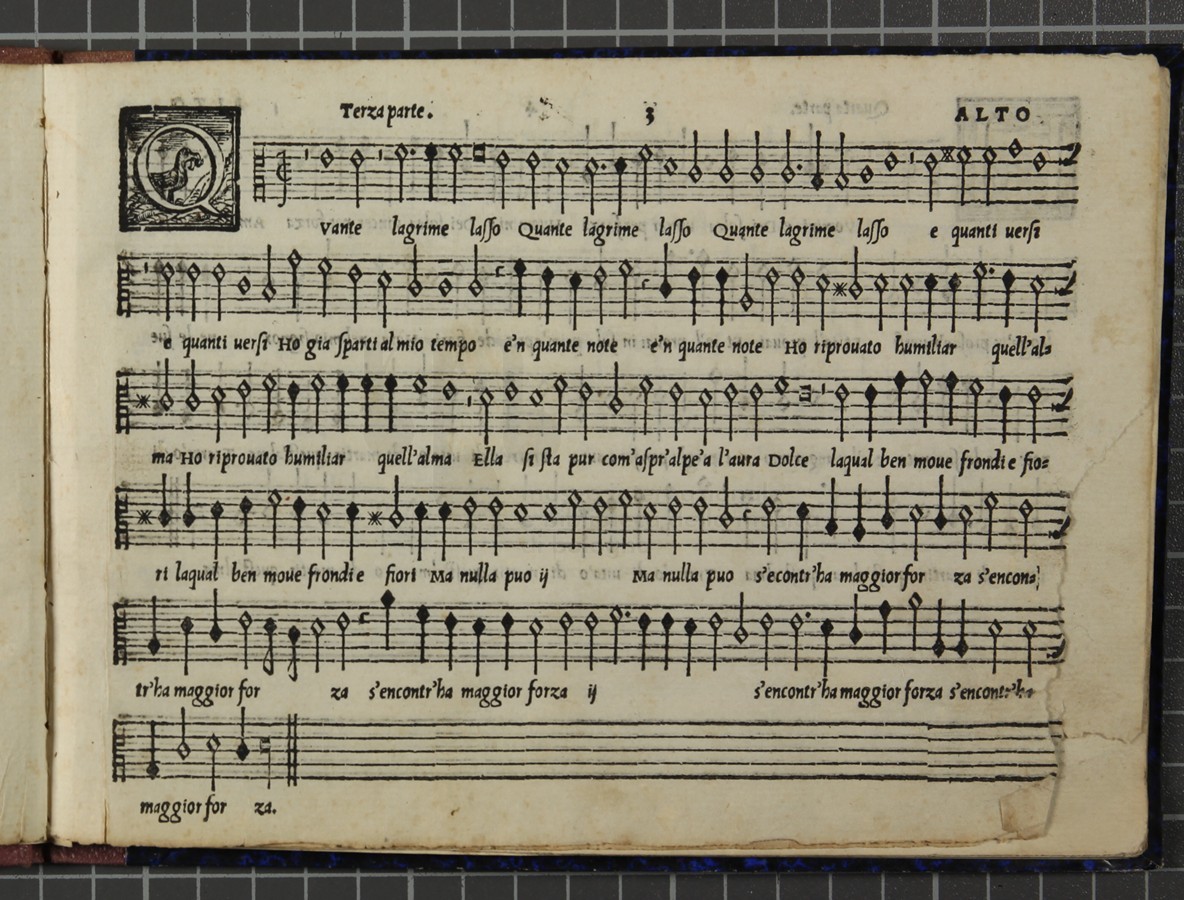 Terza parte. 3 ALTO
Q vante lagrime lasso Quante lagrime lasso Quante lagrime lasso e quanti uersi
e quanti uersi Ho gia sparti al mio tempo e'n quante note e'n quante note Ho riprouato humiliar quell'al=
ma Ho riprouato humiliar quell'alma Ella si sta pur com'aspr'alpe'a l'aura Dolce laqual ben moue frondi e fio=
ri laqual ben moue frondi e fiori Ma nulla puo ij Ma nulla puo s'econtr'ha maggior for za s'encon=
tr'ha maggior for za s'encontr'ha maggior forza ij s'encontr'ha maggior forza s'encontr'ha
maggior for za.